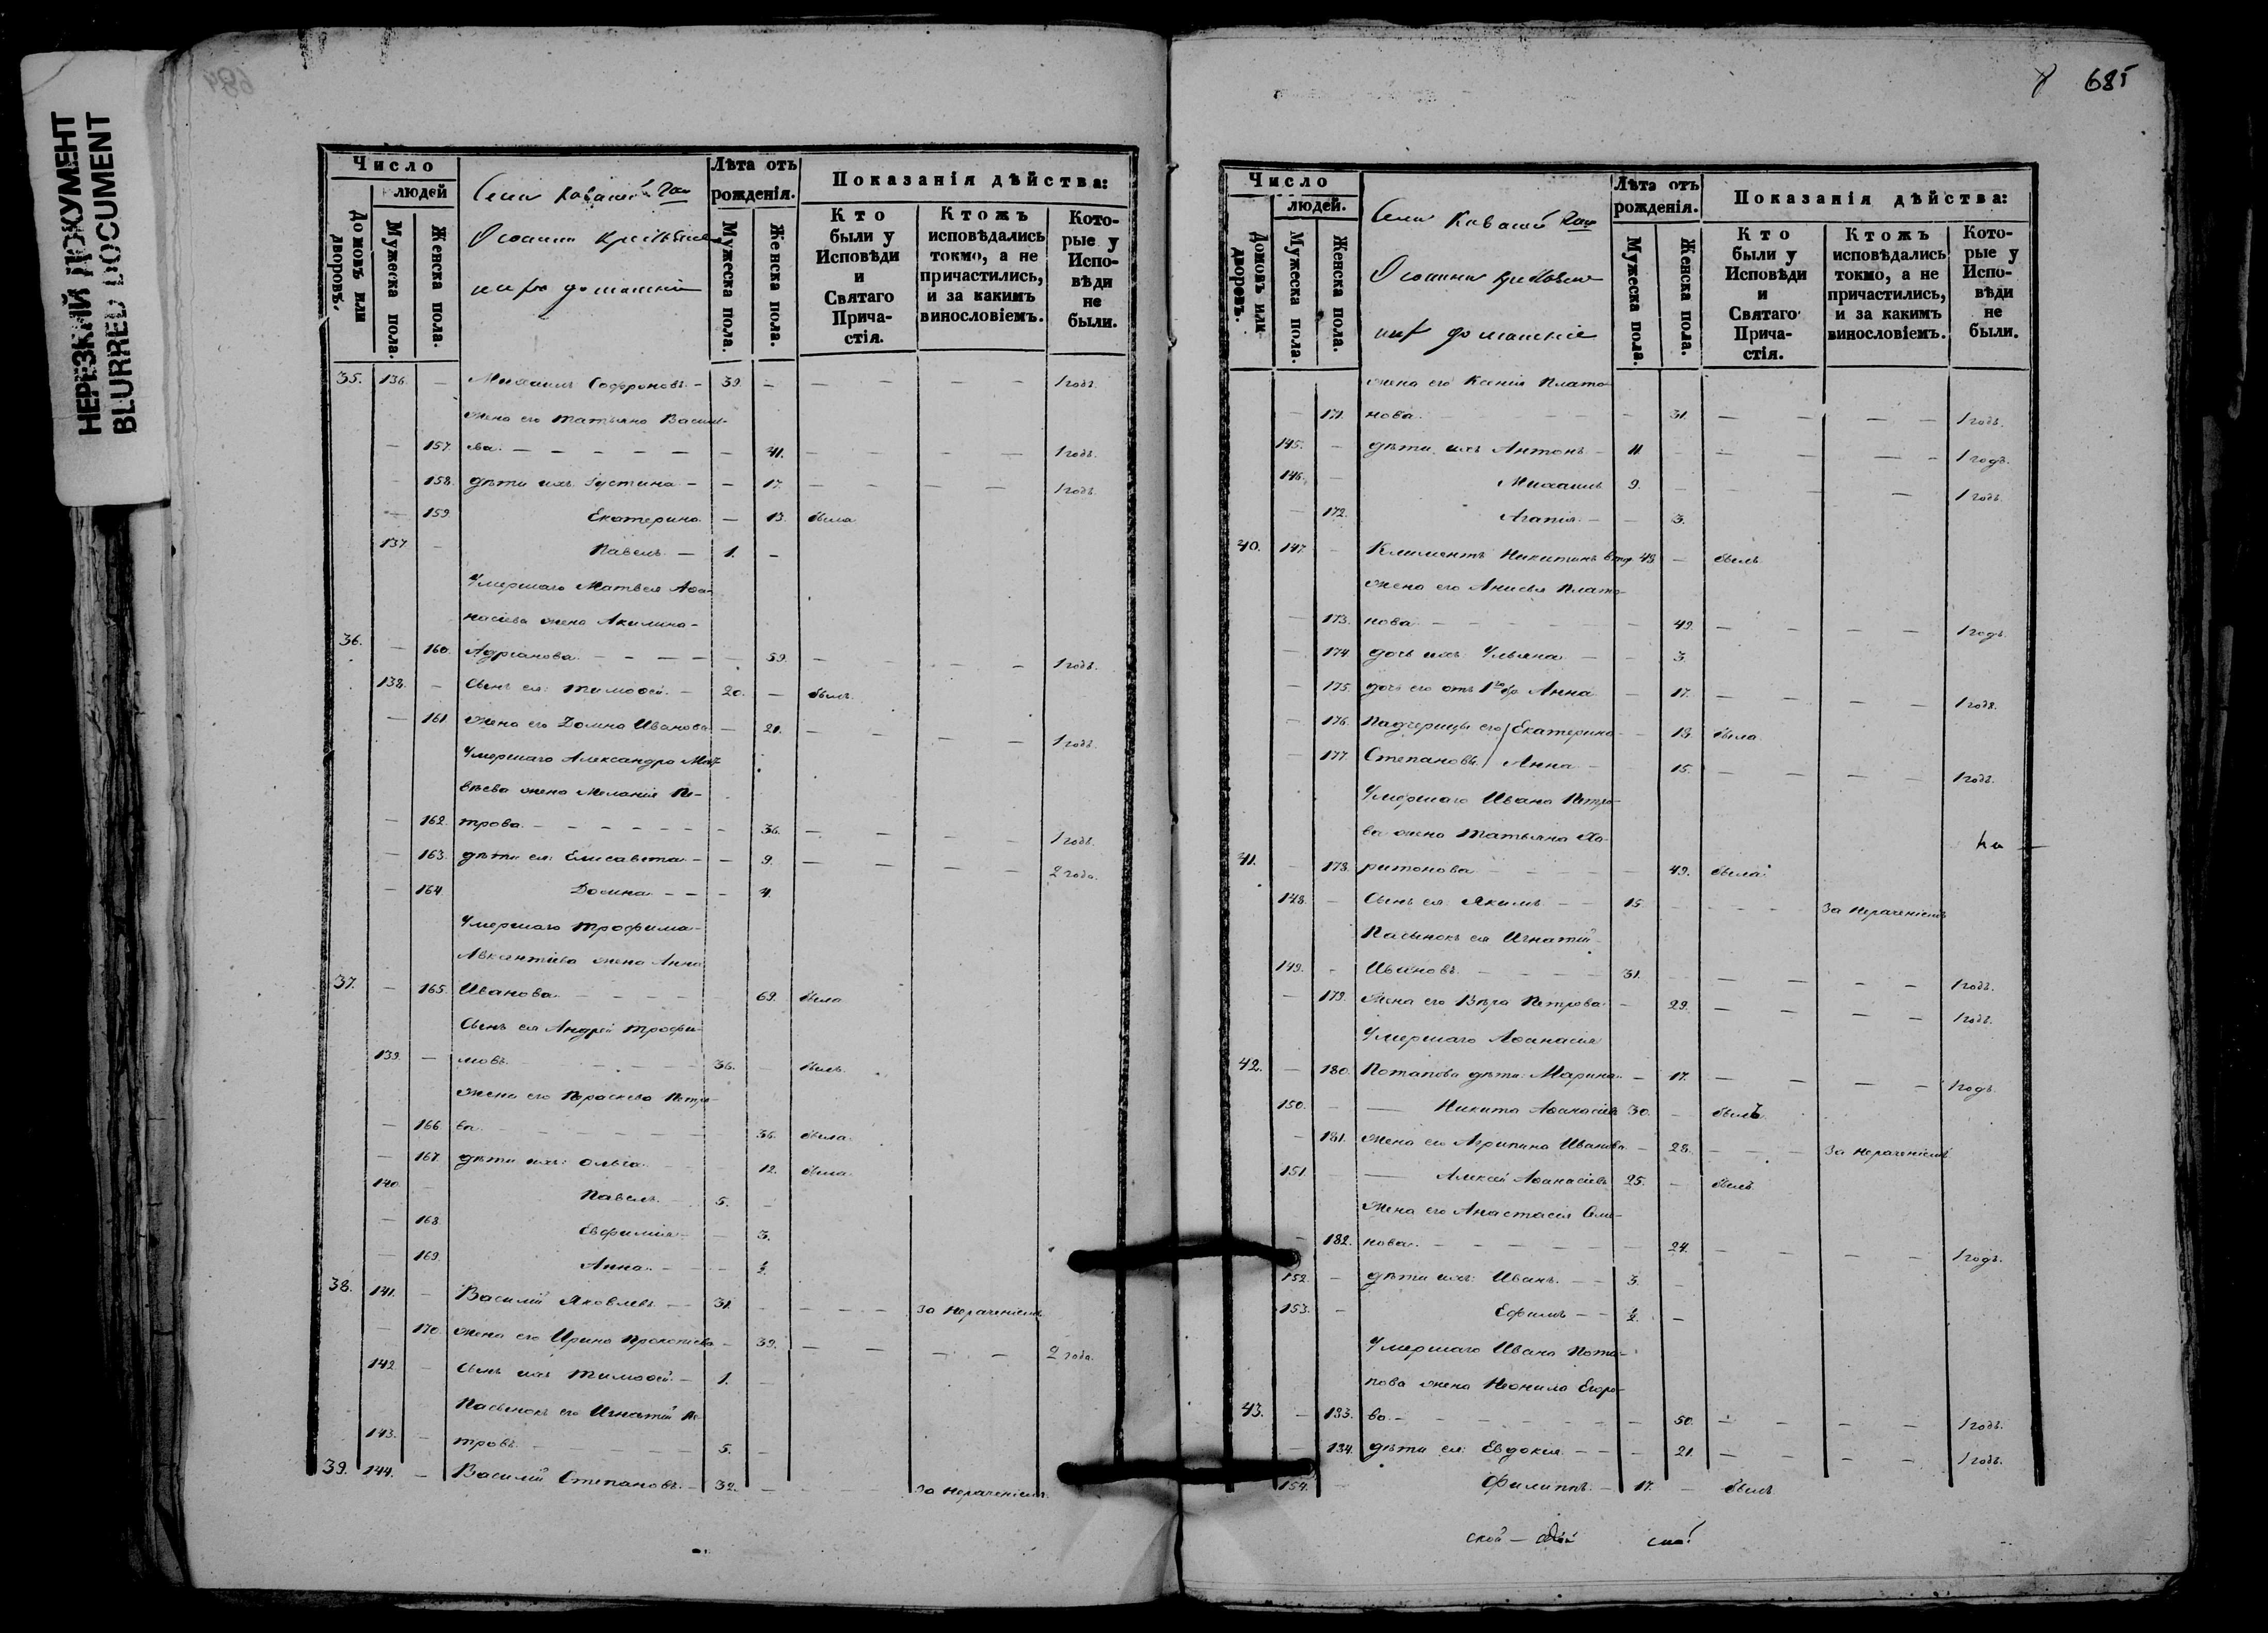 НЕРЕЗКИЙ ДОКУМЕНТ
BLURRED DOCUMENT
Число
людей
Домовъ или дворовъ.
Мужеска пола.
Женска пола.
Лѣта отъ рожденія.
Мужеска пола.
Женска пола.
Показанія дѣйства:
Кто были у Исповѣди и Святаго Причастія.
Ктожъ исповѣдались токмо, а не причастились, и за какимъ винословіемъ.
Которые у Исповѣди не были.
35. 136. — Михаилъ Софроновъ — 39. — — — — — 1 годъ.
жена его Татьяна Василь-
— 157. ева — — — — — — 41. — — — — 1 годъ.
— 158. дѣти ихъ: Іустина — — 17. — — — — 1 годъ.
— 159. Екатерина — 13. была
137. — Павелъ — 1. —
Умершаго Матвея Аѳа-
насіева жена Акилина
36. — 160. Адріанова — — — — 59. — — — — 1 годъ.
138. — Сынъ ея: Тимоѳей — 20. — былъ
— 161. жена его Домна Иванова — 21. — — — — 1 годъ.
Умершаго Александра Мат-
вѣева жена Меланія Пе-
— 162. трова — — — — — — 36. — — — — 1 годъ.
— 163. дѣти ея: Елисавета — — 9. — — — — 2 года.
— 164. Домна — — — 4.
Умершаго Трофима
Авксентіева жена Анна
37. — 165. Иванова — — — — 69. была
Сынъ ея Андрей Трофи-
139. — мовъ — — — — 36. — былъ
жена его Параскева Петро-
— 166. ва — — — — — 36. была
— 167. дѣти ихъ: Ольга — — 12. была
140. — Павелъ — 5. —
— 168. Евфимія — — 3.
— 169. Анна — — — ½.
38. 141. — Василій Яковлевъ — — 31. — — — — за нераченіемъ
— 170. жена его Ирина Прокопіева — 39. — — — — 2 года.
142. — Сынъ ихъ Тимоѳей — 1. —
Пасынокъ его Игнатій Пе-
143. — тровъ — — — — — 5. —
39. 144. — Василій Степановъ — 32. — за нераченіемъ
685
Число
людей.
Домовъ или дворовъ.
Мужеска пола.
Женска пола.
Лѣта отъ рожденія.
Мужеска пола.
Женска пола.
Показанія дѣйства:
Кто были у Исповѣди и Святаго Причастія.
Ктожъ исповѣдались токмо, а не причастились, и за какимъ винословіемъ.
Которые у Исповѣди не были.
жена его Ксенія Плато-
— 171. нова — — — — — 31. — — — — 1 годъ.
145. — дѣти ихъ Антонъ — 11. — — — — — 1 годъ.
146. — Михаилъ 9. — — — — 1 годъ.
— 172. Агапія — — 3.
40. 147. — Климентъ Никитинъ 48. — былъ
жена его Анисья Плато-
— 173. нова — — — — — 49. — — — — 1 годъ.
— 174. дочь ихъ: Ульяна — — 3.
— 175. дочь его отъ 1го бр. Анна — 17. — — — — 1 годъ.
— 176. Падчерицы его Екатерина — 18. была
— 177. Степановы Анна — 15. — — — — 1 годъ.
Умершаго Ивана Петро-
ва жена Татьяна Ха-
41. — 178. ритонова — — — — — 49. была
148. — Сынъ ея Якимъ — — 15. — — — за нераченіемъ
Пасынокъ ея Игнатій
149. — Ивановъ — — — — 31. — — — — 1 годъ.
— 179. жена его Вѣра Петрова — 29. — — — — 1 годъ.
Умершаго Аѳанасія
42. — 180. Потапова дѣти: Марина — 17. — — — — 1 годъ.
150. — — Никита Аѳанасіевъ 30. — былъ
— 181. жена его Агрипина Иванова — 28. — — — за нераченіемъ
151. — Алексѣй Аѳанасіевъ 25. — былъ
жена его Анастасія Семе-
— 182. нова — — — — — — 24. — — — — 1 годъ.
152. — дѣти ихъ: Иванъ — — 3. —
153. — Ефимъ — — ½. —
Умершаго Ивана Пота-
пова жена Неонила Егоро-
43. — 183. ва — — — — — — 50. — — — — 1 годъ.
— 184. дѣти ея: Евдокія — — — 21. — — — — 1 годъ.
154. — Филиппъ — 17. — былъ